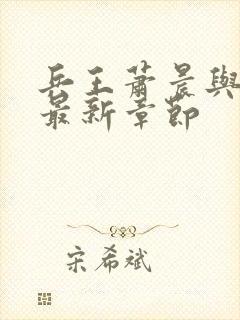 兵王蕭晨與
最新章節
宋希斌